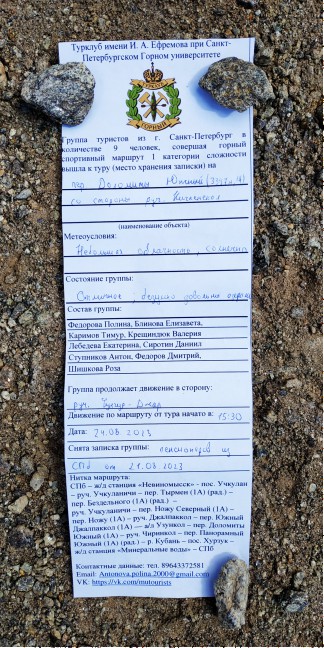 Турклуб имени И. А. Ефремова при Санкт-
Петербургском Горном университете
ГОРНЫЙ
Группа туристов из г. Санкт-Петербург в
количестве 9 человек, совершая горный
спортивный маршрут 1 категории сложности
вышла к туру (место хранения записки) на
пер. Доломиты Южный
со стороны руч.
(наименование объекта)
Метеоусловия:
Небольшая облачность, солнечно
Состояние группы:
Отличное, бодрое довольно
Состав группы:
Федорова Полина, Блинова Елизавета,
Каримов Тимур, Крещиндюк Валерия
Лебедева Екатерина, Сиротин Даниил
Ступников Антон, Федоров Дмитрий,
Шишкова Роза
Группа продолжает движение в сторону:
руч.
Движение по маршруту от тура начато в 15:30
Дата: 24.08 2023
Снята записка группы: пенсионеров из
СПб от 21.08 2023
Нитка маршрута:
СПб – ж/д станция «Невинномысск» - пос. Учкулан
- руч. Учкуланичи – пер. Тырмен (1А) (рад.) –
пер. Бездельного (1А) (рад.)
руч. Учкуланичи – пер. Ножу Северный (1А) –
пер. Ножу (1А) – руч. Джалпаккол – пер. Южный
Джалпаккол (1А) — а/л Узункол – пер. Доломиты
Южный (1А) – руч. Чиринкол – пер. Панорамный
Южный (1А) (рад.) – р. Кубань – пос. Хурзук –
ж/д станция «Минеральные воды» – СПб
Контактные данные: тел. 89643372581
Email: Antonova.polina.2000@gmail.com
VK: https://vk.com/mutourists